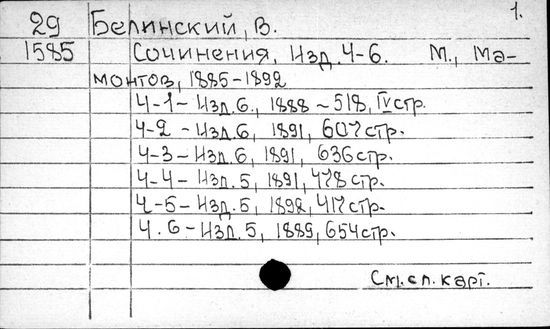 1.
29 Белинский, В.
1585 Сочинения, Изд. 4-6. М., Ма-
монтов, 1885-1892
Ч-1- Изд. 6., 1888 - 518, IV стр.
Ч-2 - Изд. 6, 1891, 607 стр.
Ч-3 - Изд. 6, 1891, 636 стр.
Ч-4 - Изд. 5, 1891, 478 стр.
Ч-5 - Изд. 5, 1892, 417 стр.
Ч. 6 - Изд. 5, 1889, 654 стр.
См. сл. карт.